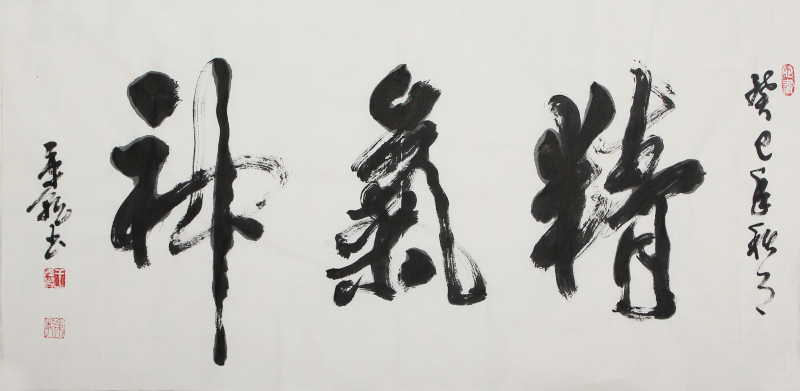 癸巳年秋月
精氣神